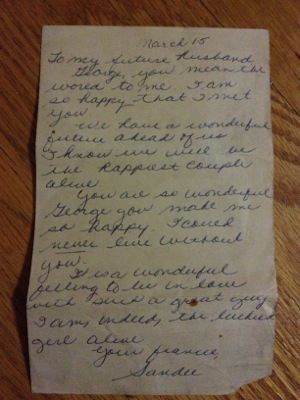 March 15
To my future husband,
George, you mean the
world to me. I am
so happy that I met
you.
We have a wonderful
future ahead of us
I know we will be
the happiest couple
alive.
You are so wonderful
George you make me
so happy. I could
never live without
you.
It is a wonderful
feeling to be in love
with such a great guy
I am, indeed, the luckiest
girl alive.
Your fiancee,
Sandee